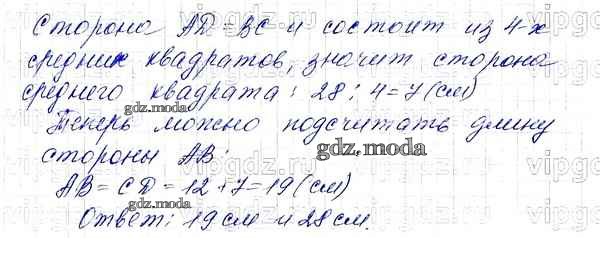 Сторона AD = BC и состоит из 4-х
средних квадратов, значит сторона
среднего квадрата: 28 : 4 = 7 (см)
Теперь можно подсчитать длину
стороны AB:
AB = CD = 12 + 7 = 19 (см)
Ответ: 19 см и 28 см.
gdz.moda
gdz.moda
gdz.moda
vipgdz.ru